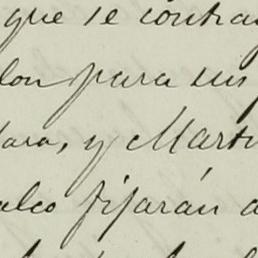 que se contra
lon para sus
para, y Marti
alco fijarán a